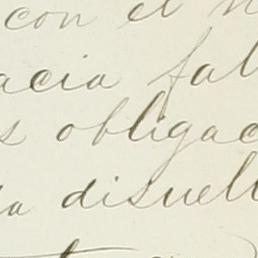 con el
acia fal
s obligac
a disuel